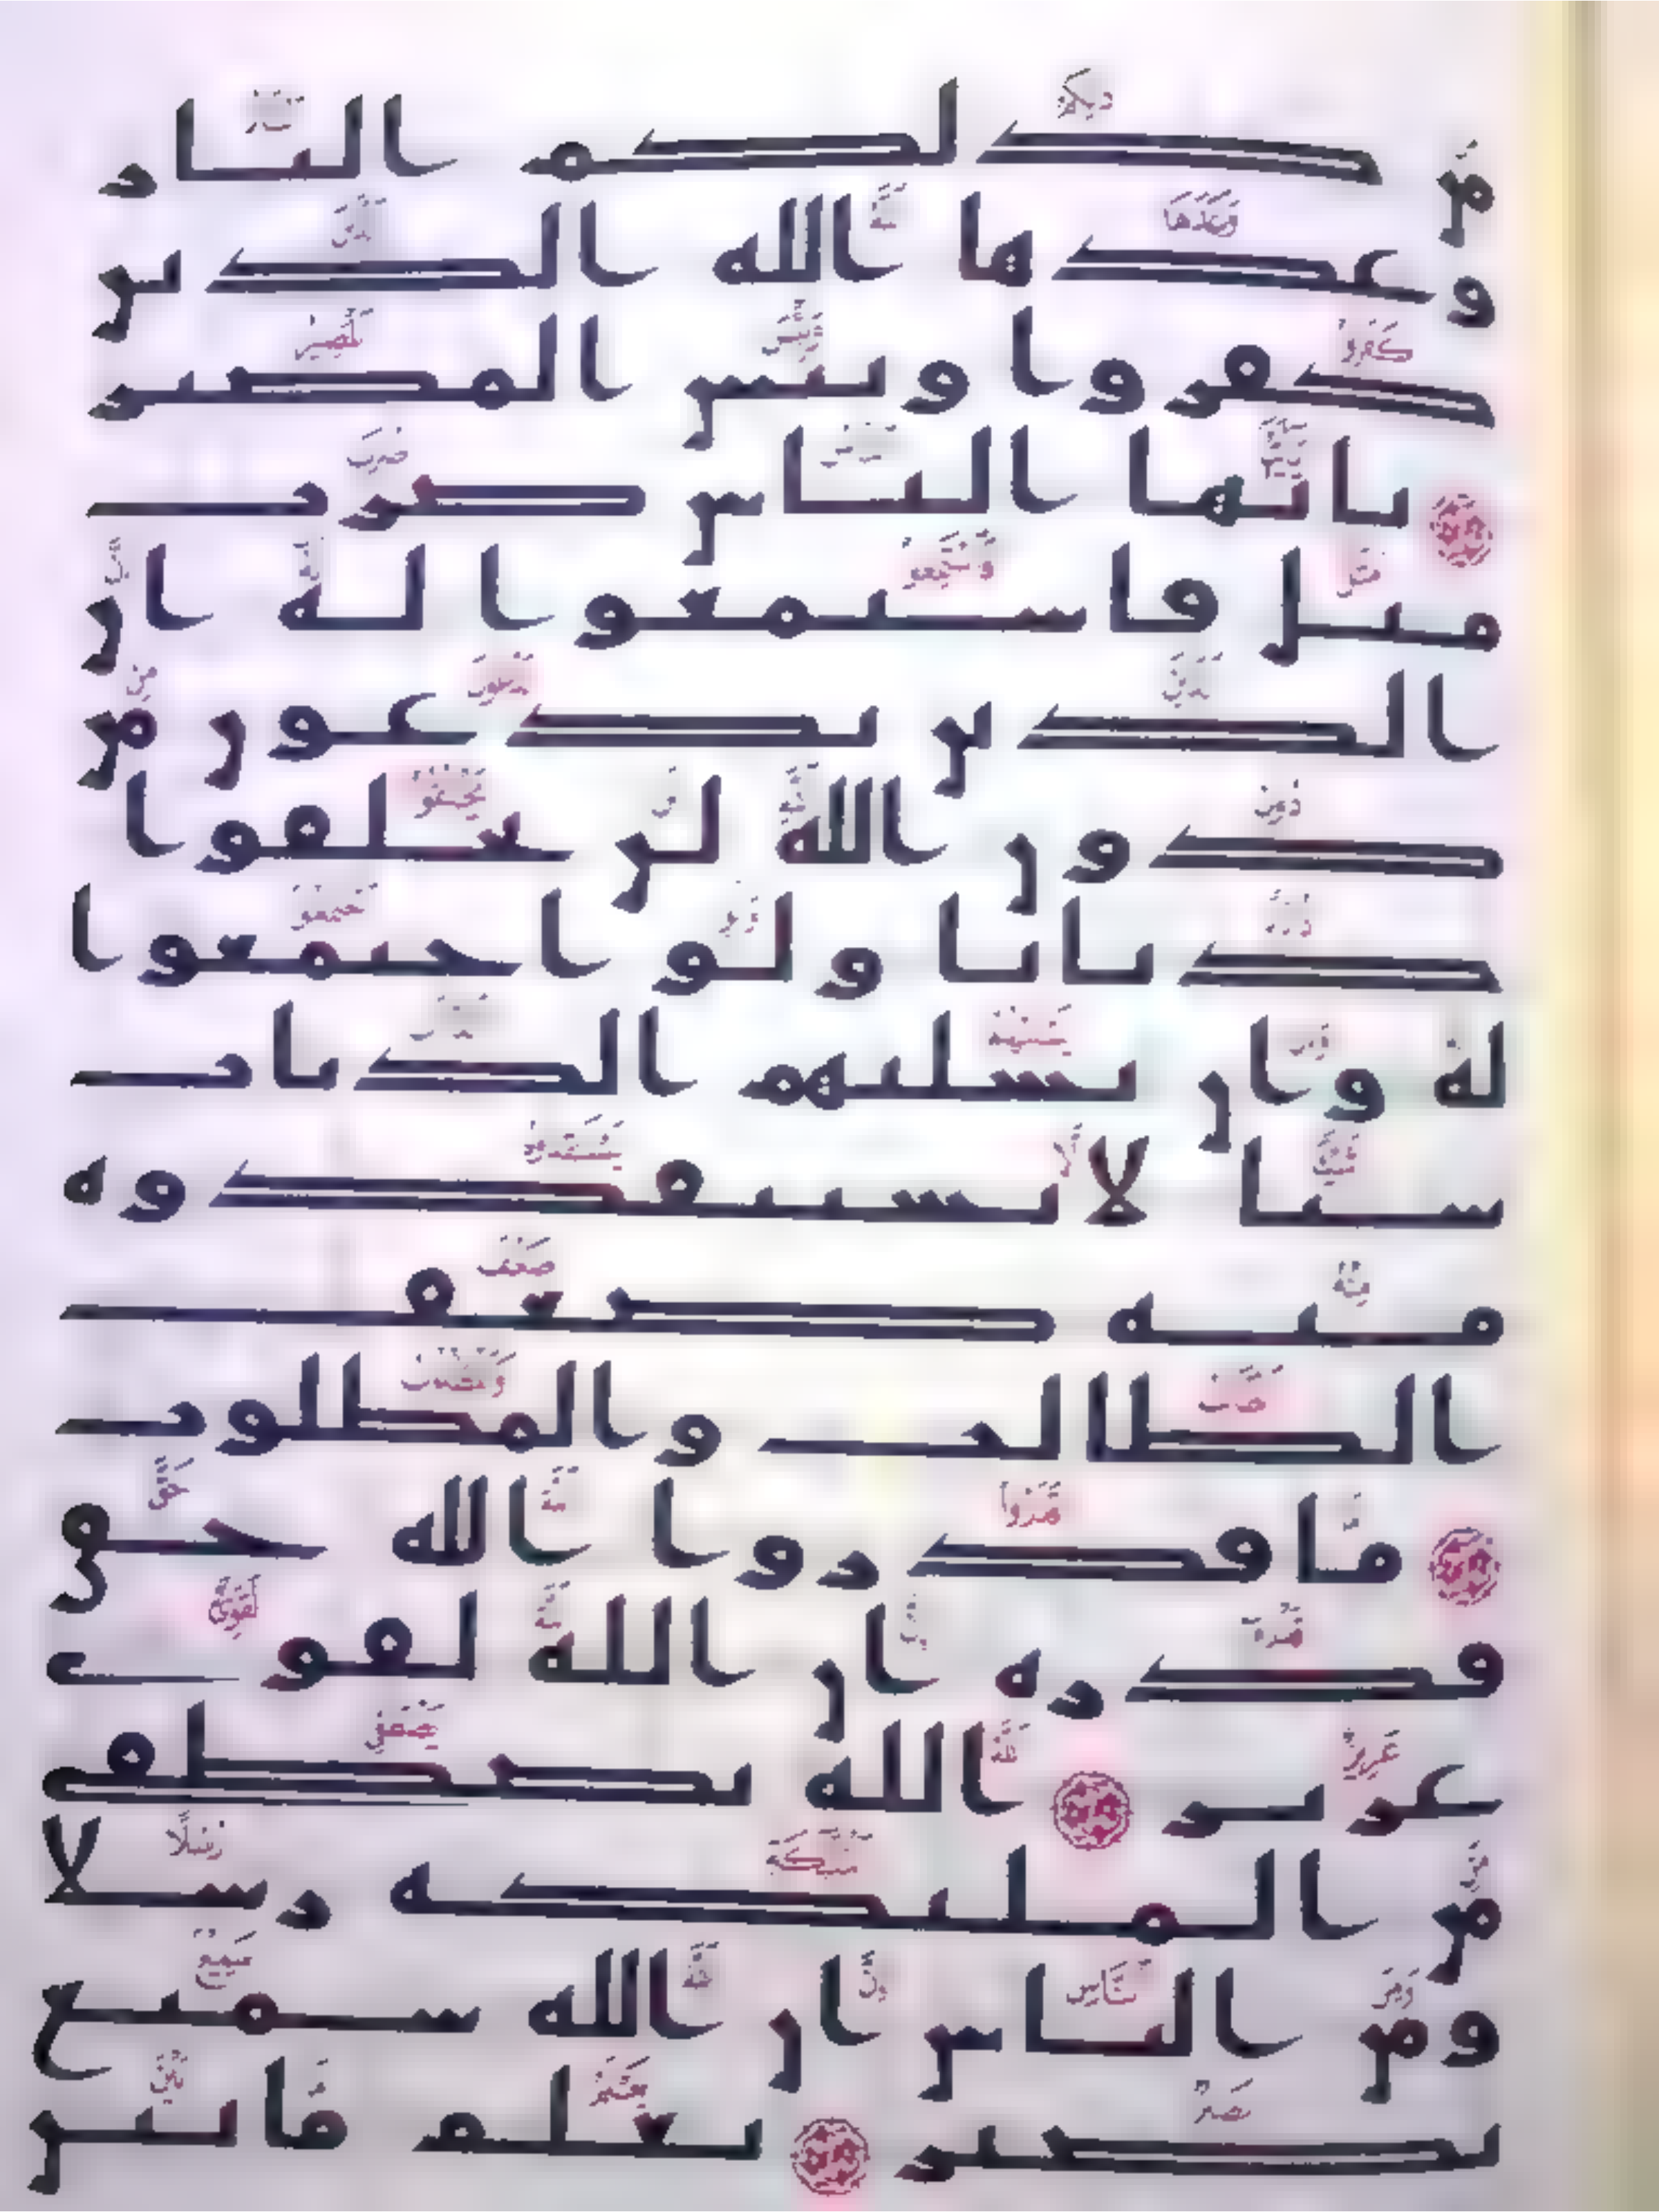 من ذلكم النار
وعدها الله الذين
كفروا وبئس المصير
يايها الناس ضرب
مثل فاستمعوا له ان
الذين تدعون من
دون الله لن يخلقوا
ذبابا ولو اجتمعوا
له وان يسلبهم الذباب
شيئا لا يستنقذوه
منه ضعف
الطالب والمطلوب
ما قدروا الله حق
قدره ان الله لقوي
عزيز الله يصطفي
من الملئكة رسلا
ومن الناس ان الله سميع
بصير يعلم ما بين